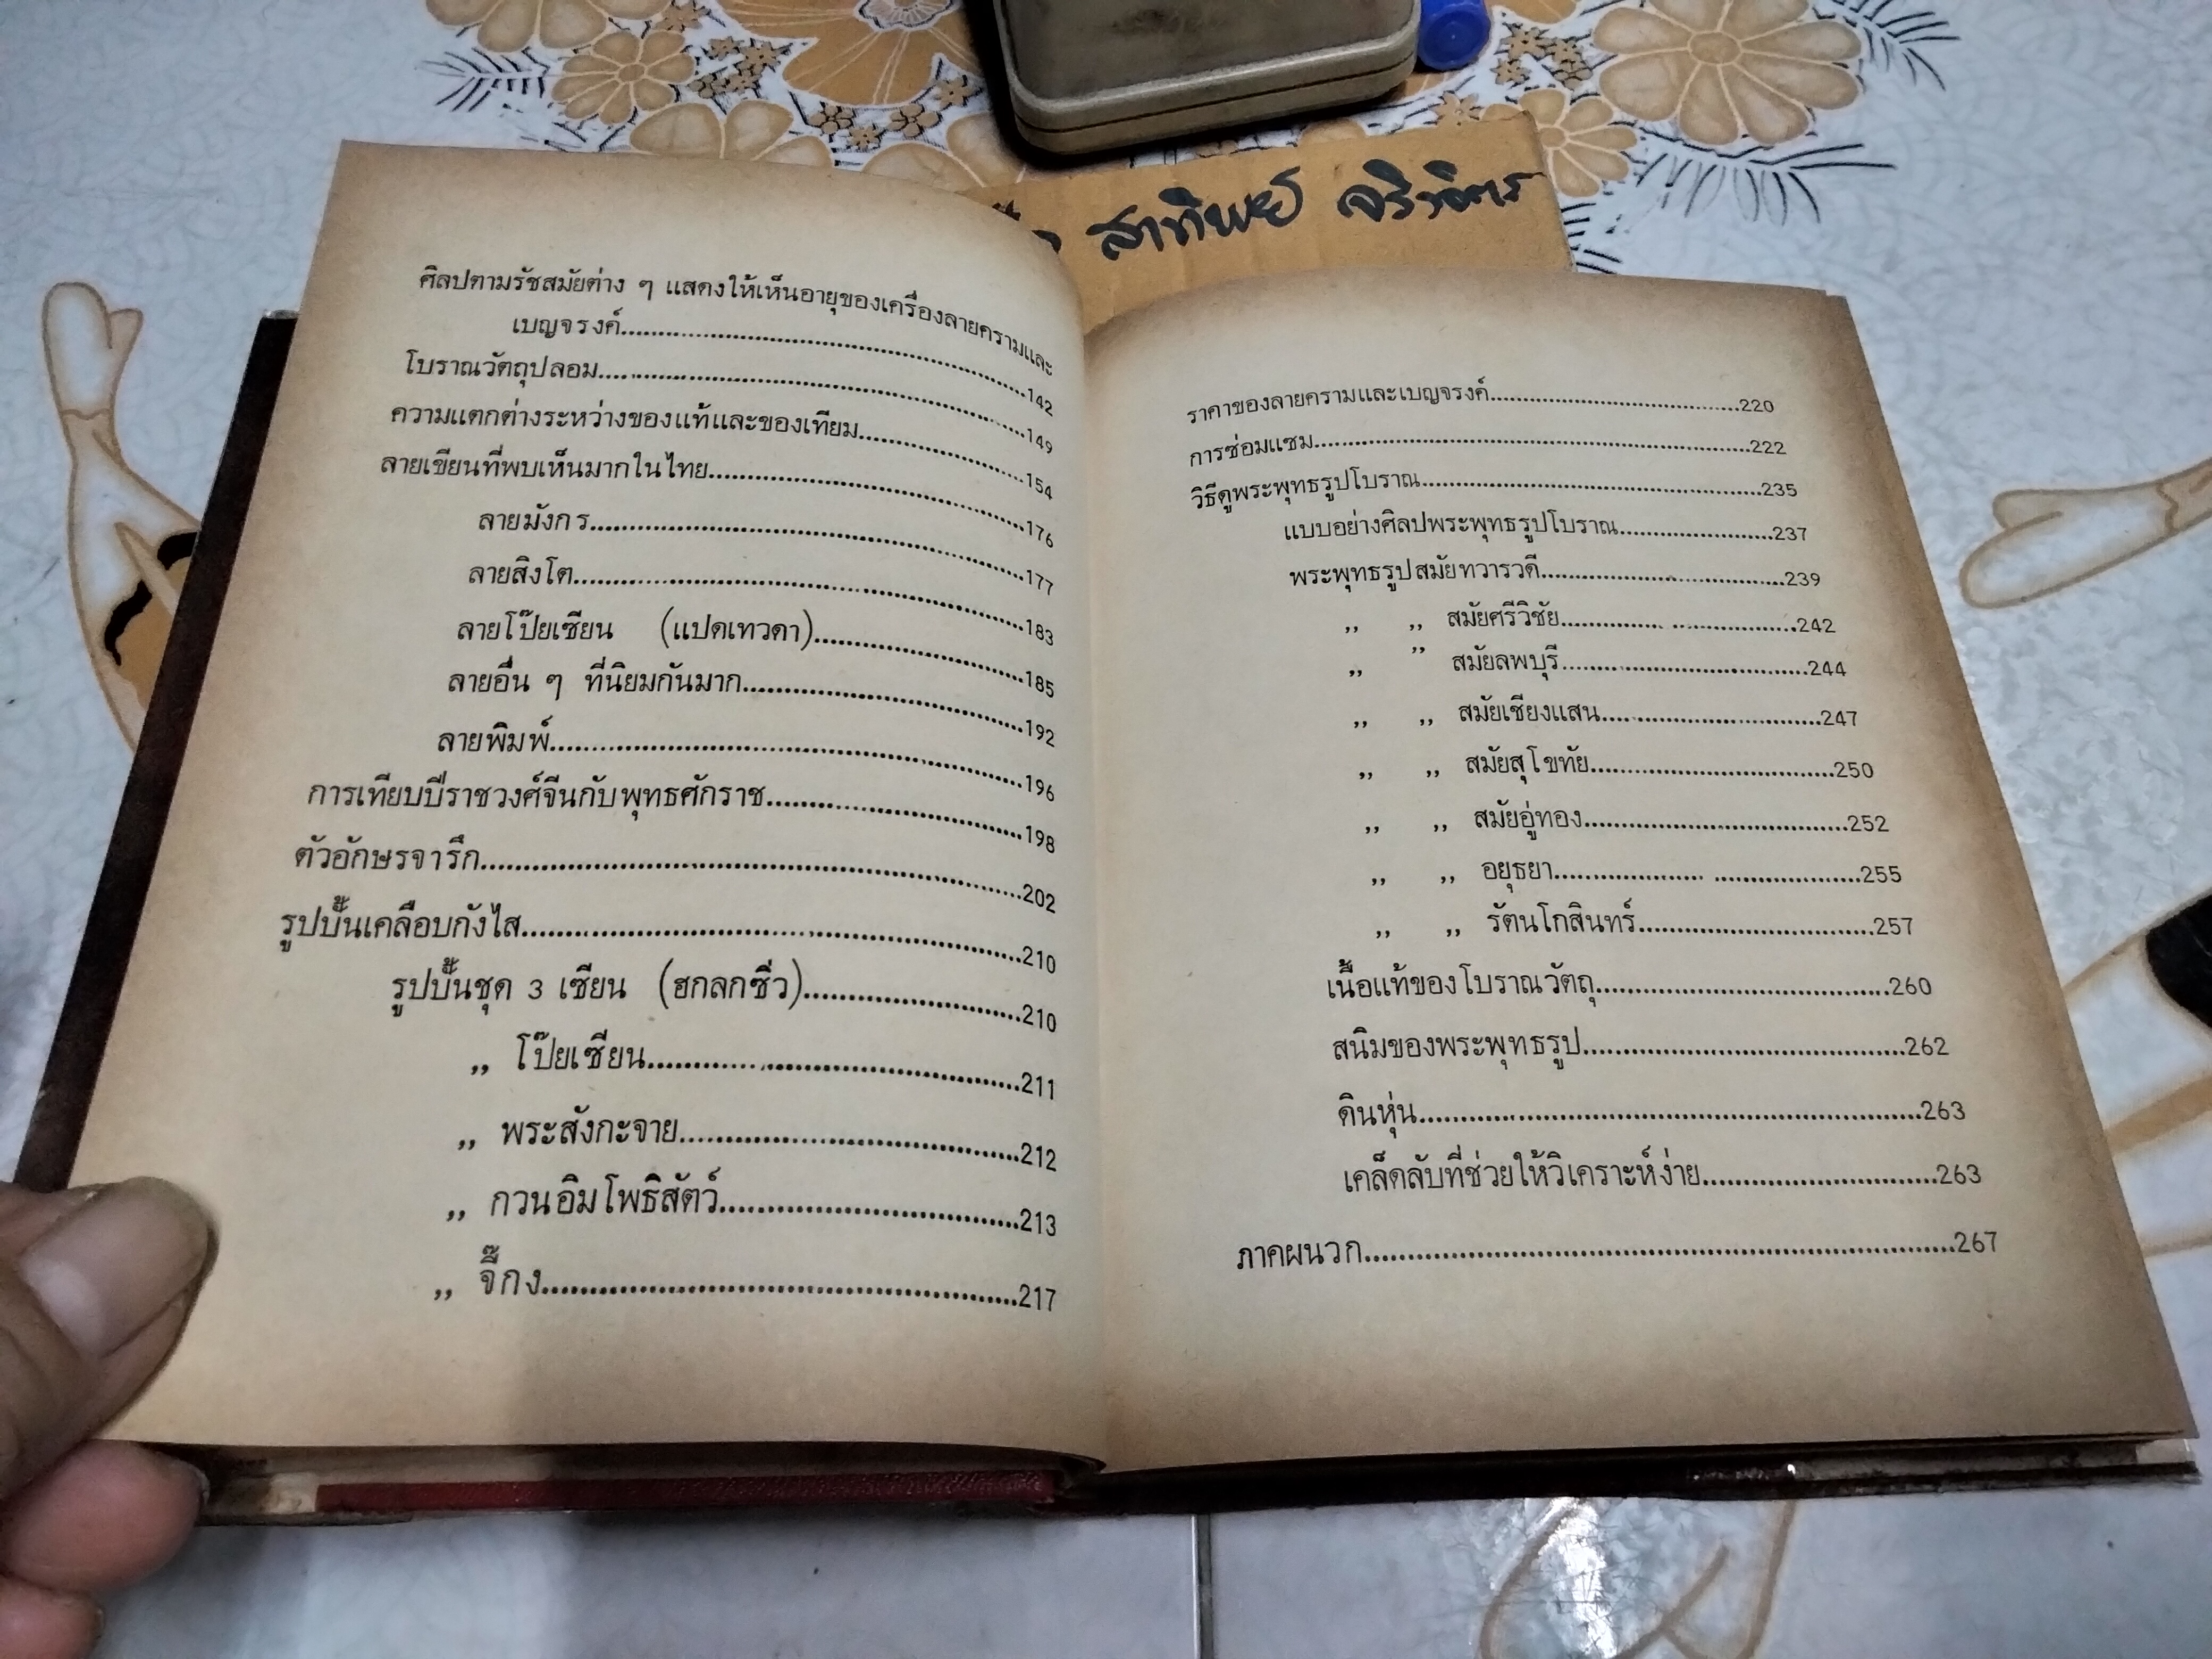 สาทิพย์ จริวจิตร
ศิลปตามรัชสมัยต่าง ๆ แสดงให้เห็นอายุของเครื่องลายครามและ
เบญจรงค์..............................142
โบราณวัตถุปลอม..............................149
ความแตกต่างระหว่างของแท้และของเทียม..............................154
ลายเขียนที่พบเห็นมากในไทย..............................176
ลายมังกร..............................177
ลายสิงโต..............................183
ลายโป๊ยเซียน (แปดเทวดา)..............................185
ลายอื่น ๆ ที่นิยมกันมาก..............................192
ลายพิมพ์..............................196
การเทียบปีราชวงศ์จีนกับพุทธศักราช..............................198
ตัวอักษรจารึก..............................202
รูปปั้นเคลือบกังไส..............................210
รูปปั้นชุด 3 เซียน (ฮกลกซิ่ว)..............................210
,, โป๊ยเซียน..............................211
,, พระสังกะจาย..............................212
,, กวนอิมโพธิสัตว์..............................213
,, จี๊กง..............................217
ราคาของลายครามและเบญจรงค์..............................220
การซ่อมแซม..............................222
วิธีดูพระพุทธรูปโบราณ..............................235
แบบอย่างศิลปพระพุทธรูปโบราณ..............................237
พระพุทธรูปสมัยทวารวดี..............................239
,, ,, สมัยศรีวิชัย..............................242
,, ,, สมัยลพบุรี..............................244
,, ,, สมัยเชียงแสน..............................247
,, ,, สมัยสุโขทัย..............................250
,, ,, สมัยอู่ทอง..............................252
,, ,, อยุธยา..............................255
,, ,, รัตนโกสินทร์..............................257
เนื้อแท้ของโบราณวัตถุ..............................260
สนิมของพระพุทธรูป..............................262
ดินหุ่น..............................263
เคล็ดลับที่ช่วยให้วิเคราะห์ง่าย..............................263
ภาคผนวก..............................267